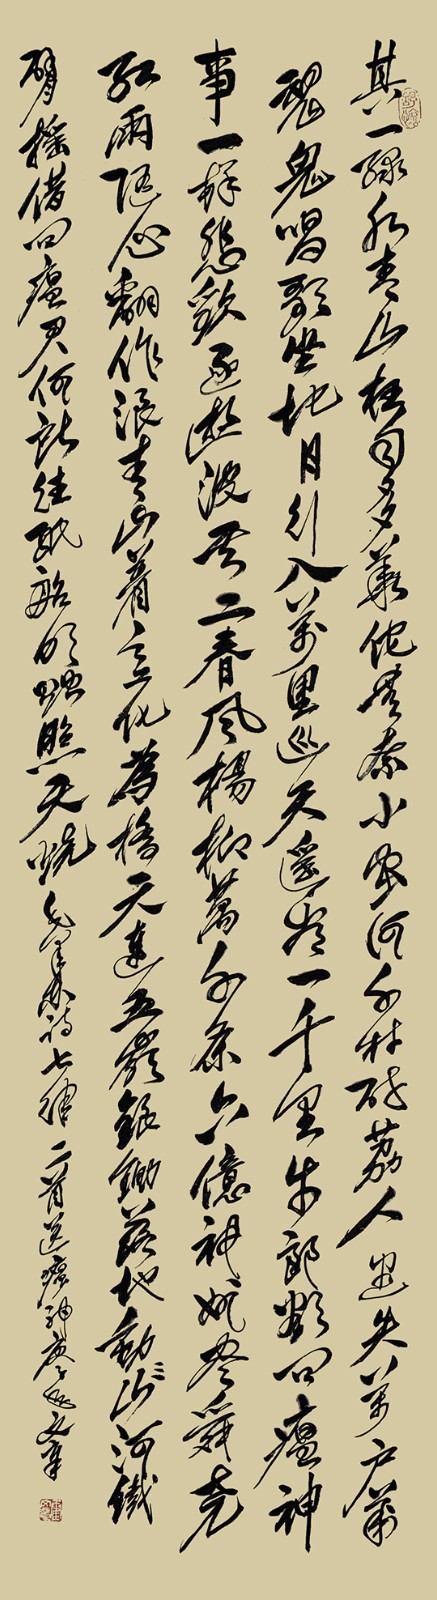 其一绿水青山枉自多華佗無奈小虫何千村薜荔人遗矢萬户萧
疏鬼唱歌坐地日行八萬里巡天遥看一千里牛郎欲问瘟神
事一样悲歡逐逝波其二春風楊柳萬千条六億神州尽舜尧
红雨随心翻作浪青山着意化為橋天連五嶺銀鋤落地動山河鐵
臂摇借问瘟君何欲往纸船明燭照天烧毛泽东诗七律二首送瘟神